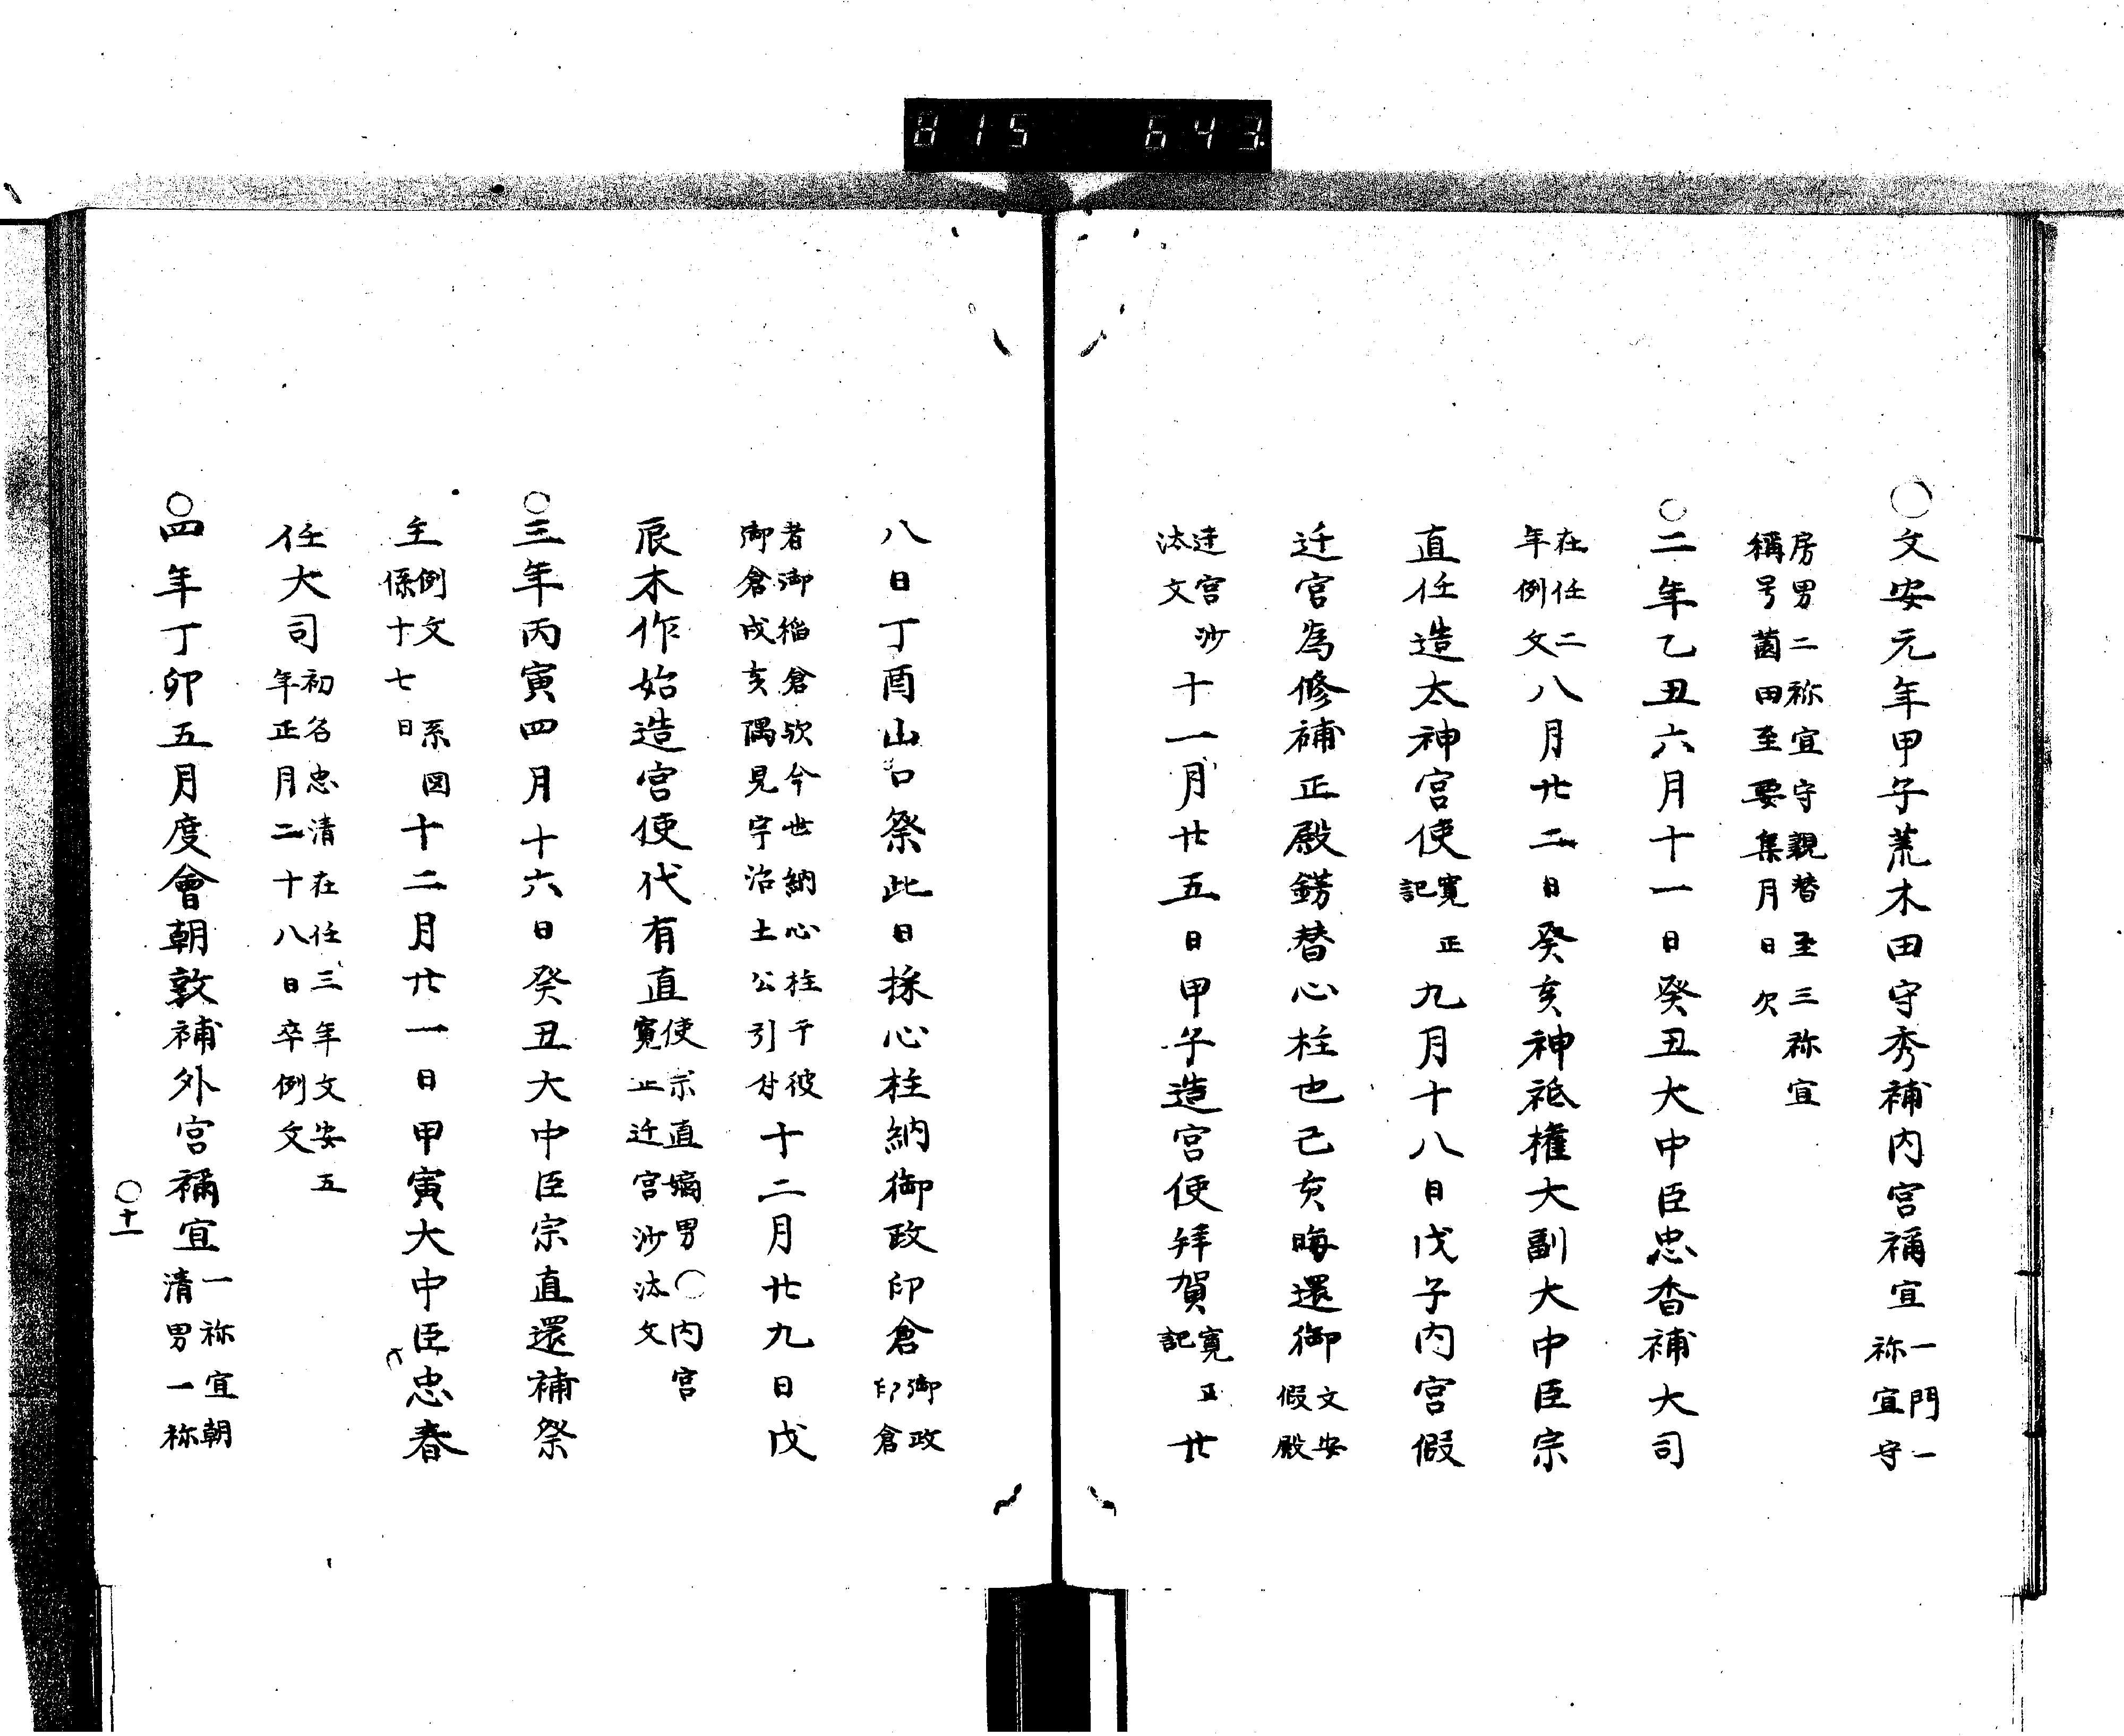 815 643
○文安元年甲子荒木田守秀補内宮禰宜一門一祢宜守
房男二祢宜守親替至三祢宜
稱号薗田至要集月日欠
○二年乙丑六月十一日癸丑大中臣忠香補大司
在任二年例文八月廿二日癸亥神祇權大副大中臣宗
直任造太神宮使寛正記九月十八日戊子内宮假
迁宮為修補正殿錺替心柱也己亥晦還御文安假殿
迁宮沙汰文十一月廿五日甲子造宮使拜賀寛正記廿
八日丁酉山口祭此日採心柱納御政印倉御政印倉
者御稲倉欤今世納心柱于彼
御倉戌亥隅見宇治土公引付十二月廿九日戊
辰木作始造宮使代有直使宗直嫡男○内宮寛正迁宮沙汰文
○三年丙寅四月十六日癸丑大中臣宗直還補祭
主例文係十七日系図十二月廿一日甲寅大中臣忠春
任大司初名忠清在任三年文安五年正月二十八日卒例文
○四年丁卯五月度會朝敦補外宮禰宜一祢宜朝清男一祢
○十一